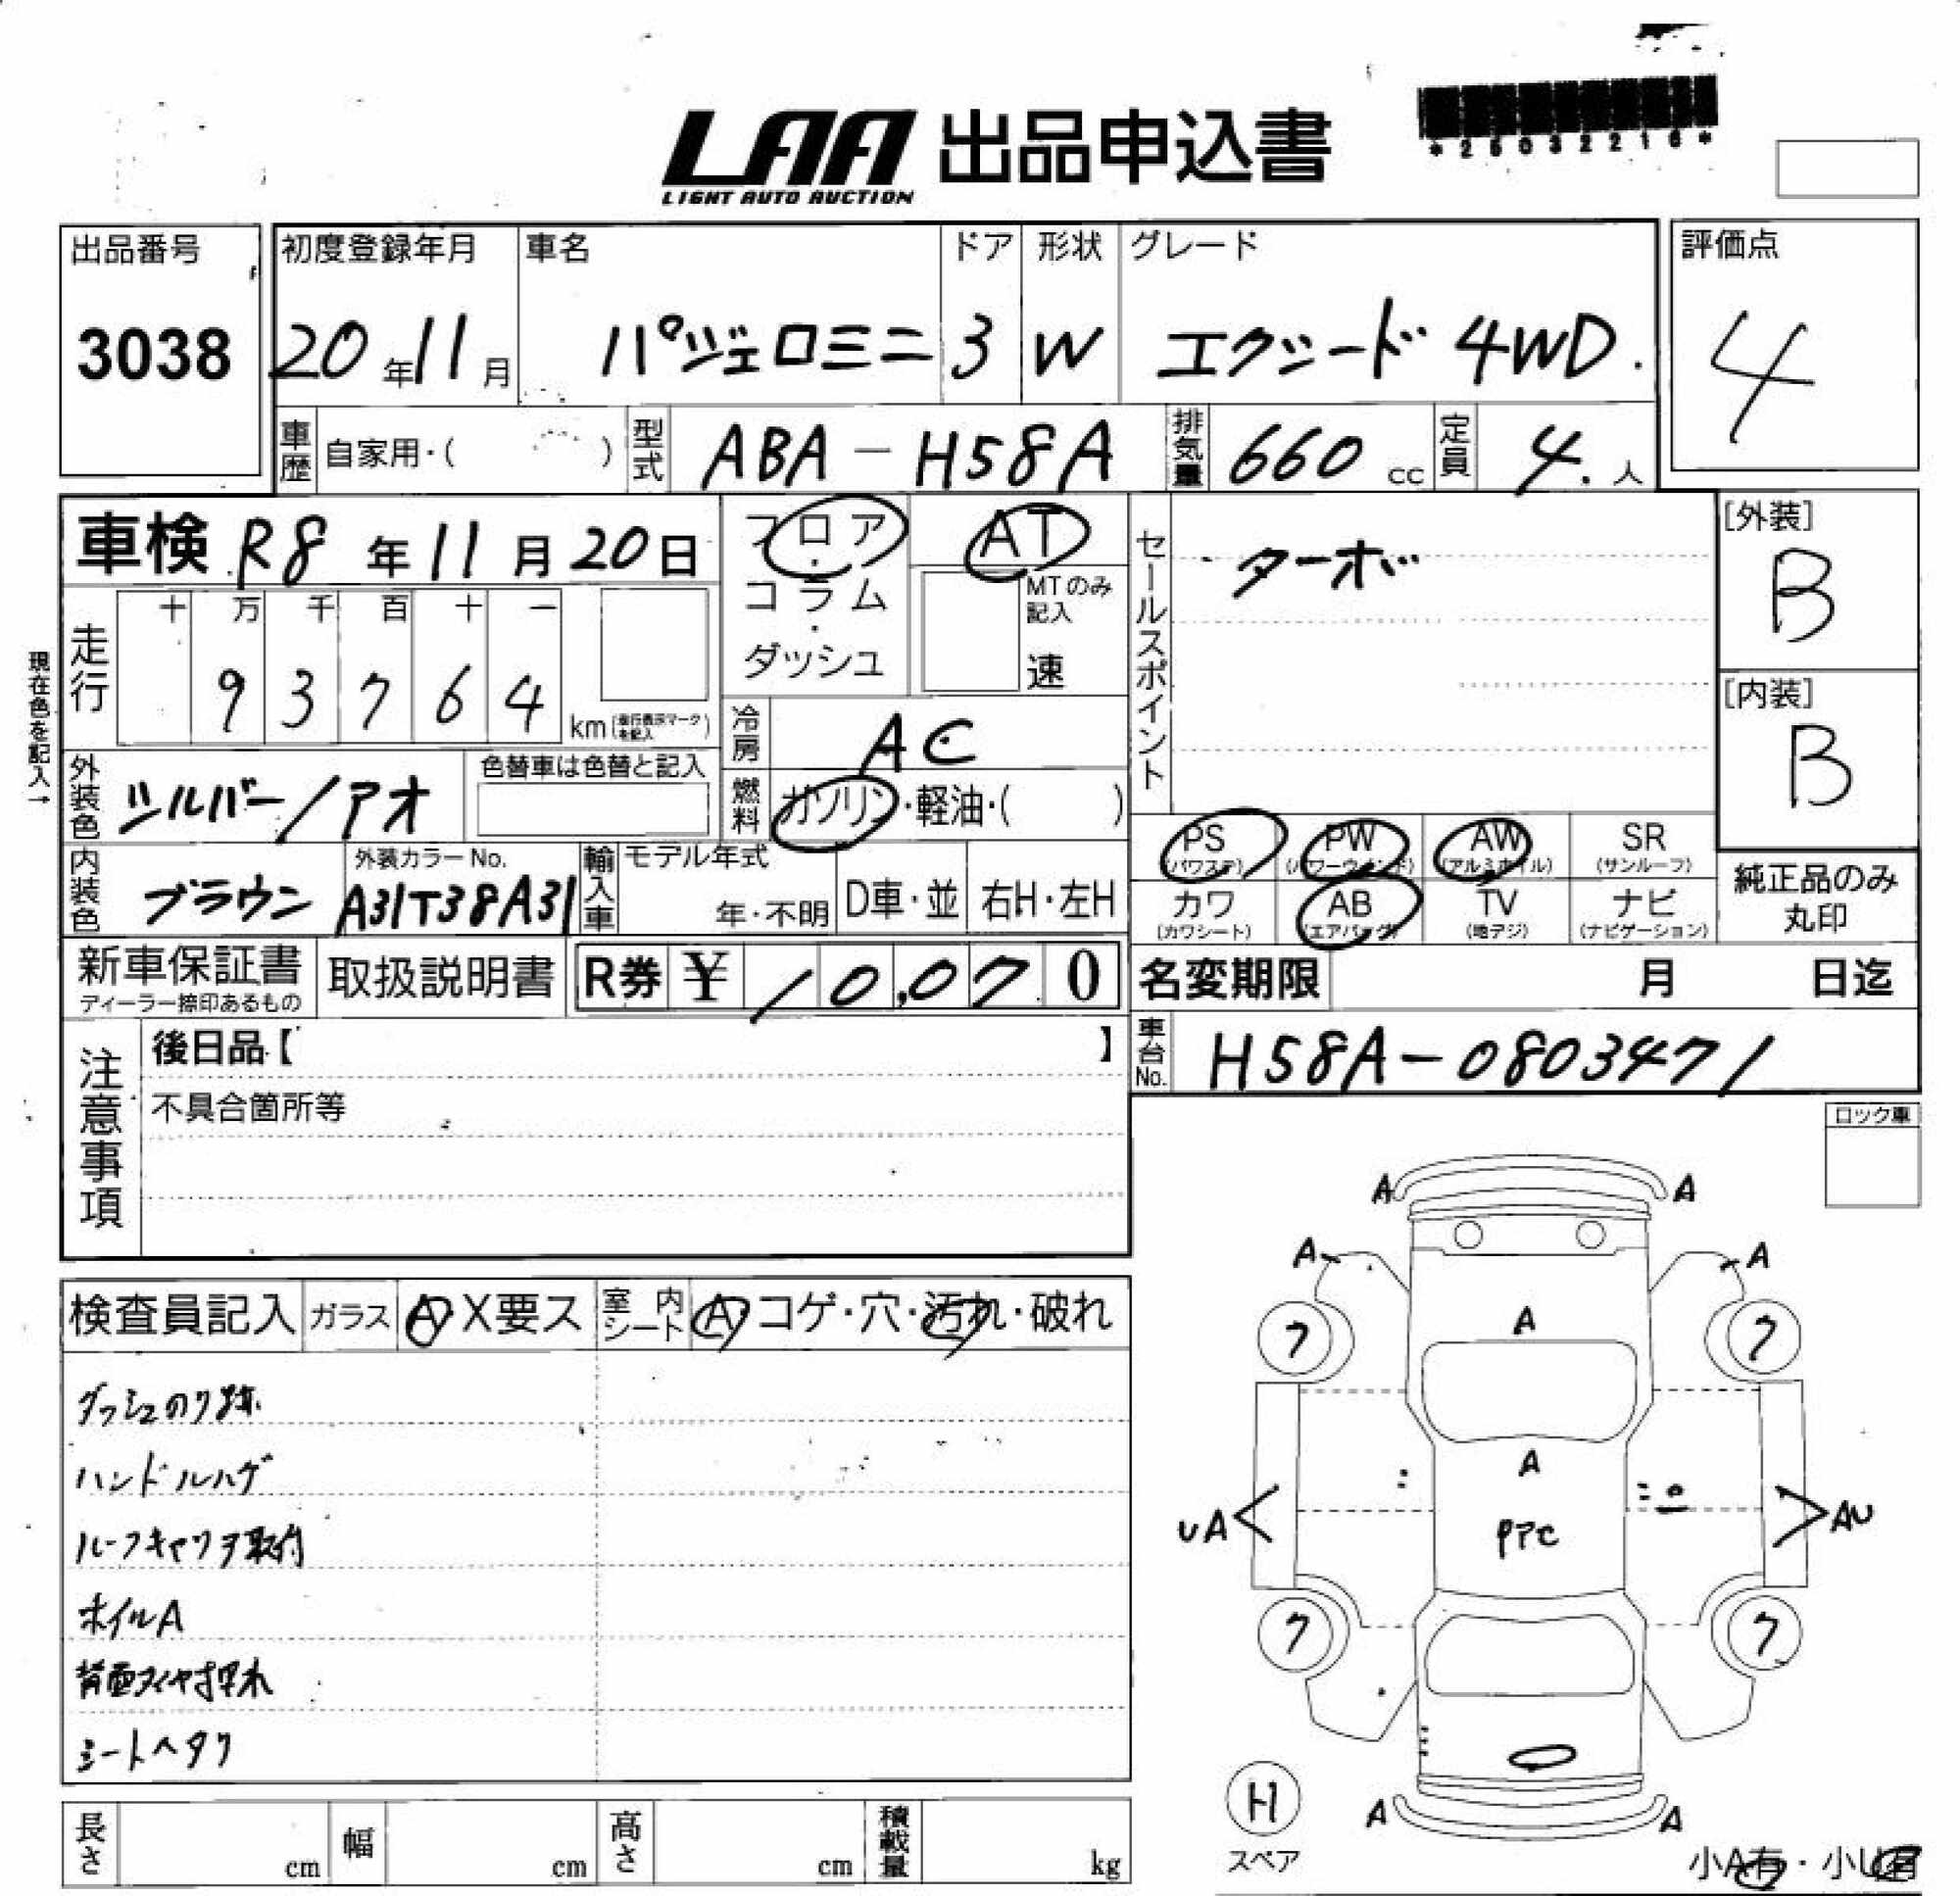 LAA 出品申込書
LIGHT AUTO AUCTION
*25032216*
出品番号 初度登録年月 車名 ドア 形状 グレード 評価点
3038 20年11月 パジェロミニ 3 W エクシード 4WD. 4
車歴 自家用・( ) 型式 ABA-H58A 排気量 660 cc 定員 4. 人
車検 R8年11月20日 フロア・コラム・ダッシュ AT
MTのみ記入 速
セールスポイント ターボ
[外装] B
[内装] B
現在色を記入→
走行 十 万 千 百 十 一
9 3 7 6 4 km (走行表示マークを記入)
冷房 AC
外装色 シルバー/アオ 色替車は色替と記入 燃料 ガソリン・軽油・( )
PS (パワステ) PW (パワーウインド) AW (アルミホイル) SR (サンルーフ)
内装色 ブラウン 外装カラーNo. A31T38A31 輸入車 モデル年式 年・不明 D車・並 右H・左H
カワ (カワシート) AB (エアバッグ) TV (地デジ) ナビ (ナビゲーション) 純正品のみ丸印
新車保証書 ディーラー捺印あるもの 取扱説明書 R券 ¥ 10,070 名変期限 月 日迄
注意事項 後日品【 】
車台No. H58A-0803471
不具合箇所等
ロック車
検査員記入 ガラス A・X要ス 室内シート A・コゲ・穴・汚れ・破れ
ダッシュのリ跡
ハンドルハゲ
ルーフキャリア取付
ホイルA
背面タイヤ押され
シートヘタリ
A A
A A
A
フ フ
A
UA AU
PアC
フ フ
H
スペア
A A
小A有・小U有
長さ cm 幅 cm 高さ cm 積載量 kg